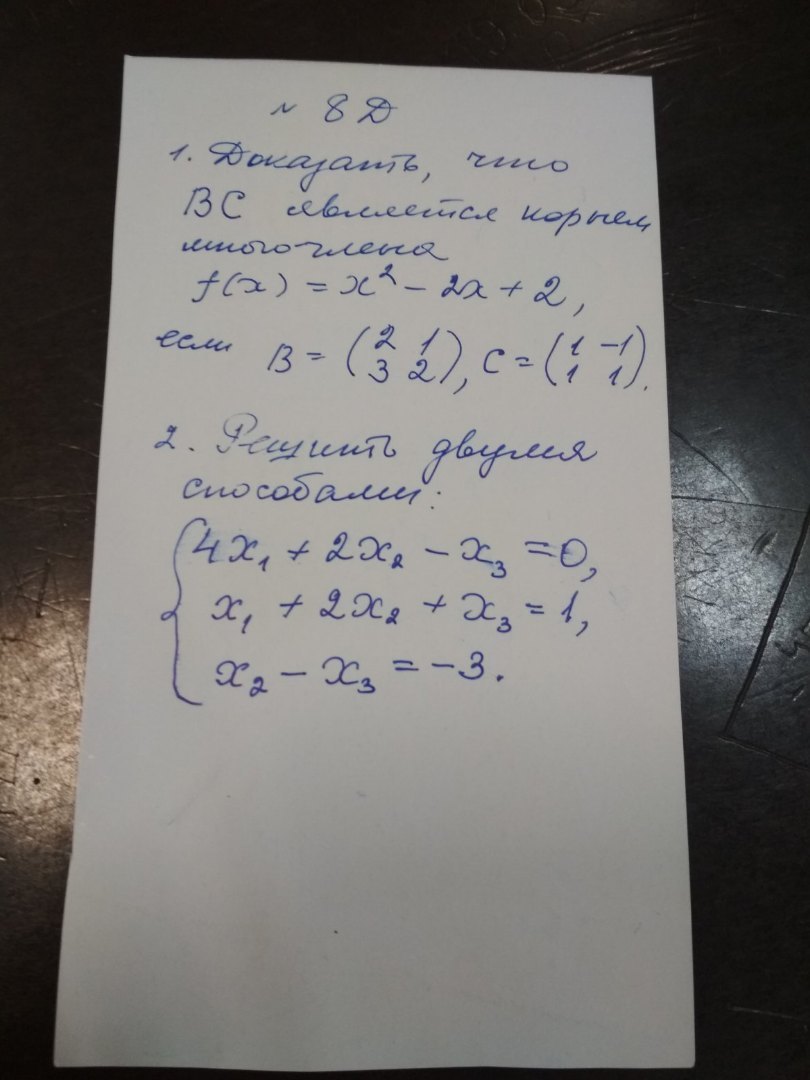 № 8 Д
1. Доказать, что
BC является корнем
многочлена
f(x) = x² - 2x + 2,
если B = (2 1
3 2), C = (1 -1
1 1).
2. Решить двумя
способами:
4x₁ + 2x₂ - x₃ = 0,
x₁ + 2x₂ + x₃ = 1,
x₂ - x₃ = -3.